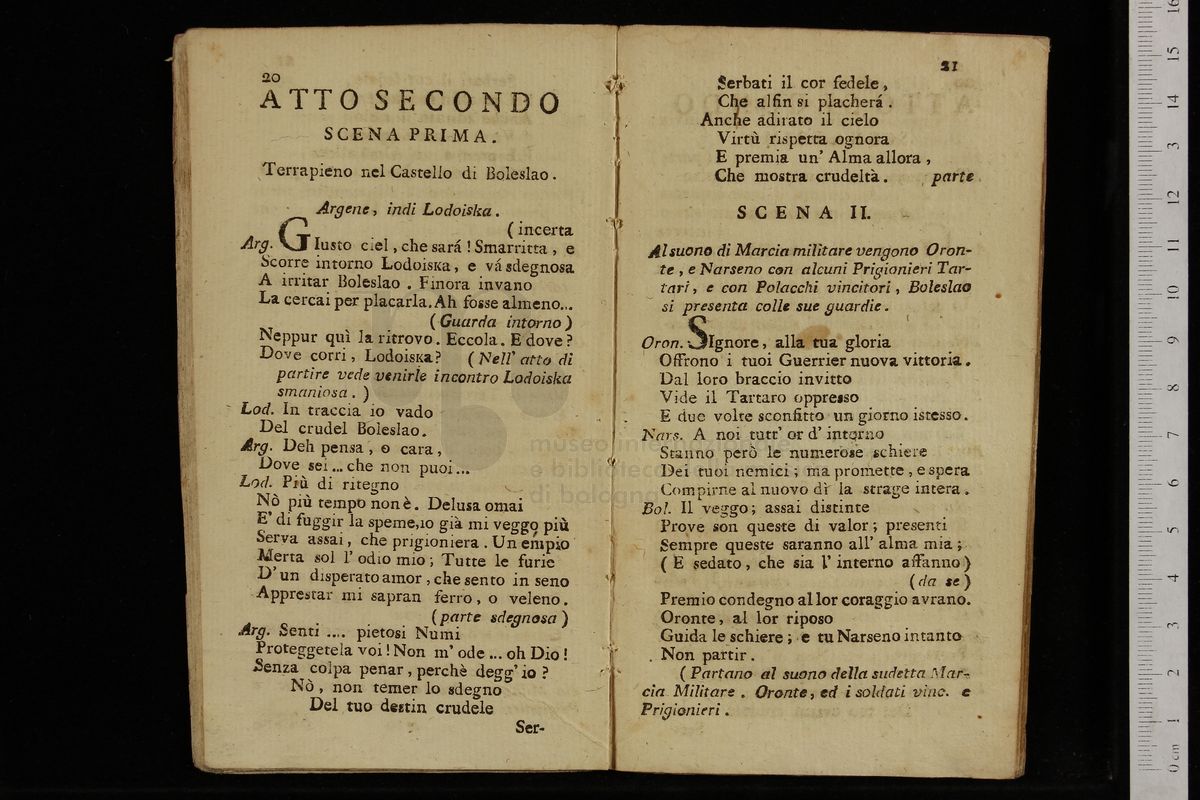 20
ATTO SECONDO
SCENA PRIMA.
Terrapieno nel Castello di Boleslao.
Argene, indi Lodoiska.
( incerta
Arg. GIusto ciel, che sará ! Smarritta, e
Scorre intorno Lodoiska, e vá sdegnosa
A irritar Boleslao . Finora invano
La cercai per placarla. Ah fosse almeno...
( Guarda intorno )
Neppur quì la ritrovo. Eccola. E dove ?
Dove corri, Lodoiska? ( Nell' atto di
partire vede venirle incontro Lodoiska
smaniosa. )
Lod. In traccia io vado
Del crudel Boleslao.
Arg. Deh pensa, o cara,
Dove sei ... che non puoi ...
Lod. Più di ritegno
Nò più tempo non è. Delusa omai
E' di fuggir la speme, io già mi veggo più
Serva assai, che prigioniera . Un empio
Merta sol l' odio mio ; Tutte le furie
D' un disperato amor, che sento in seno
Apprestar mi sapran ferro, o veleno.
( parte sdegnosa )
Arg. Senti .... pietosi Numi
Proteggetela voi ! Non m' ode ... oh Dio !
Senza colpa penar, perchè degg' io ?
Nò, non temer lo sdegno
Del tuo destin crudele
Ser-
21
Serbati il cor fedele,
Che alfin si placherá.
Anche adirato il cielo
Virtù rispetta ognora
E premia un' Alma allora,
Che mostra crudeltà. parte
SCENA II.
Al suono di Marcia militare vengono Oron-
te, e Narseno con alcuni Prigionieri Tar-
tari, e con Polacchi vincitori, Boleslao
si presenta colle sue guardie.
Oron. SIgnore, alla tua gloria
Offrono i tuoi Guerrier nuova vittoria.
Dal loro braccio invitto
Vide il Tartaro oppresso
E due volte sconfitto un giorno istesso.
Nars. A noi tutt' or d' intorno
Stanno però le numerose schiere
Dei tuoi nemici ; ma promette, e spera
Compirne al nuovo dì la strage intera.
Bol. Il veggo ; assai distinte
Prove son queste di valor ; presenti
Sempre queste saranno all' alma mia ;
( E sedato, che sia l' interno affanno )
( da se )
Premio condegno al lor coraggio avrano.
Oronte, al lor riposo
Guida le schiere ; e tu Narseno intanto
Non partir.
( Partano al suono della sudetta Mar-
cia Militare . Oronte, ed i soldati vinc. e
Prigionieri .
museo internazionale
e biblioteca
di bologna
0 cm 1 2 3 4 5 6 7 8 9 10 11 12 13 14 15 16